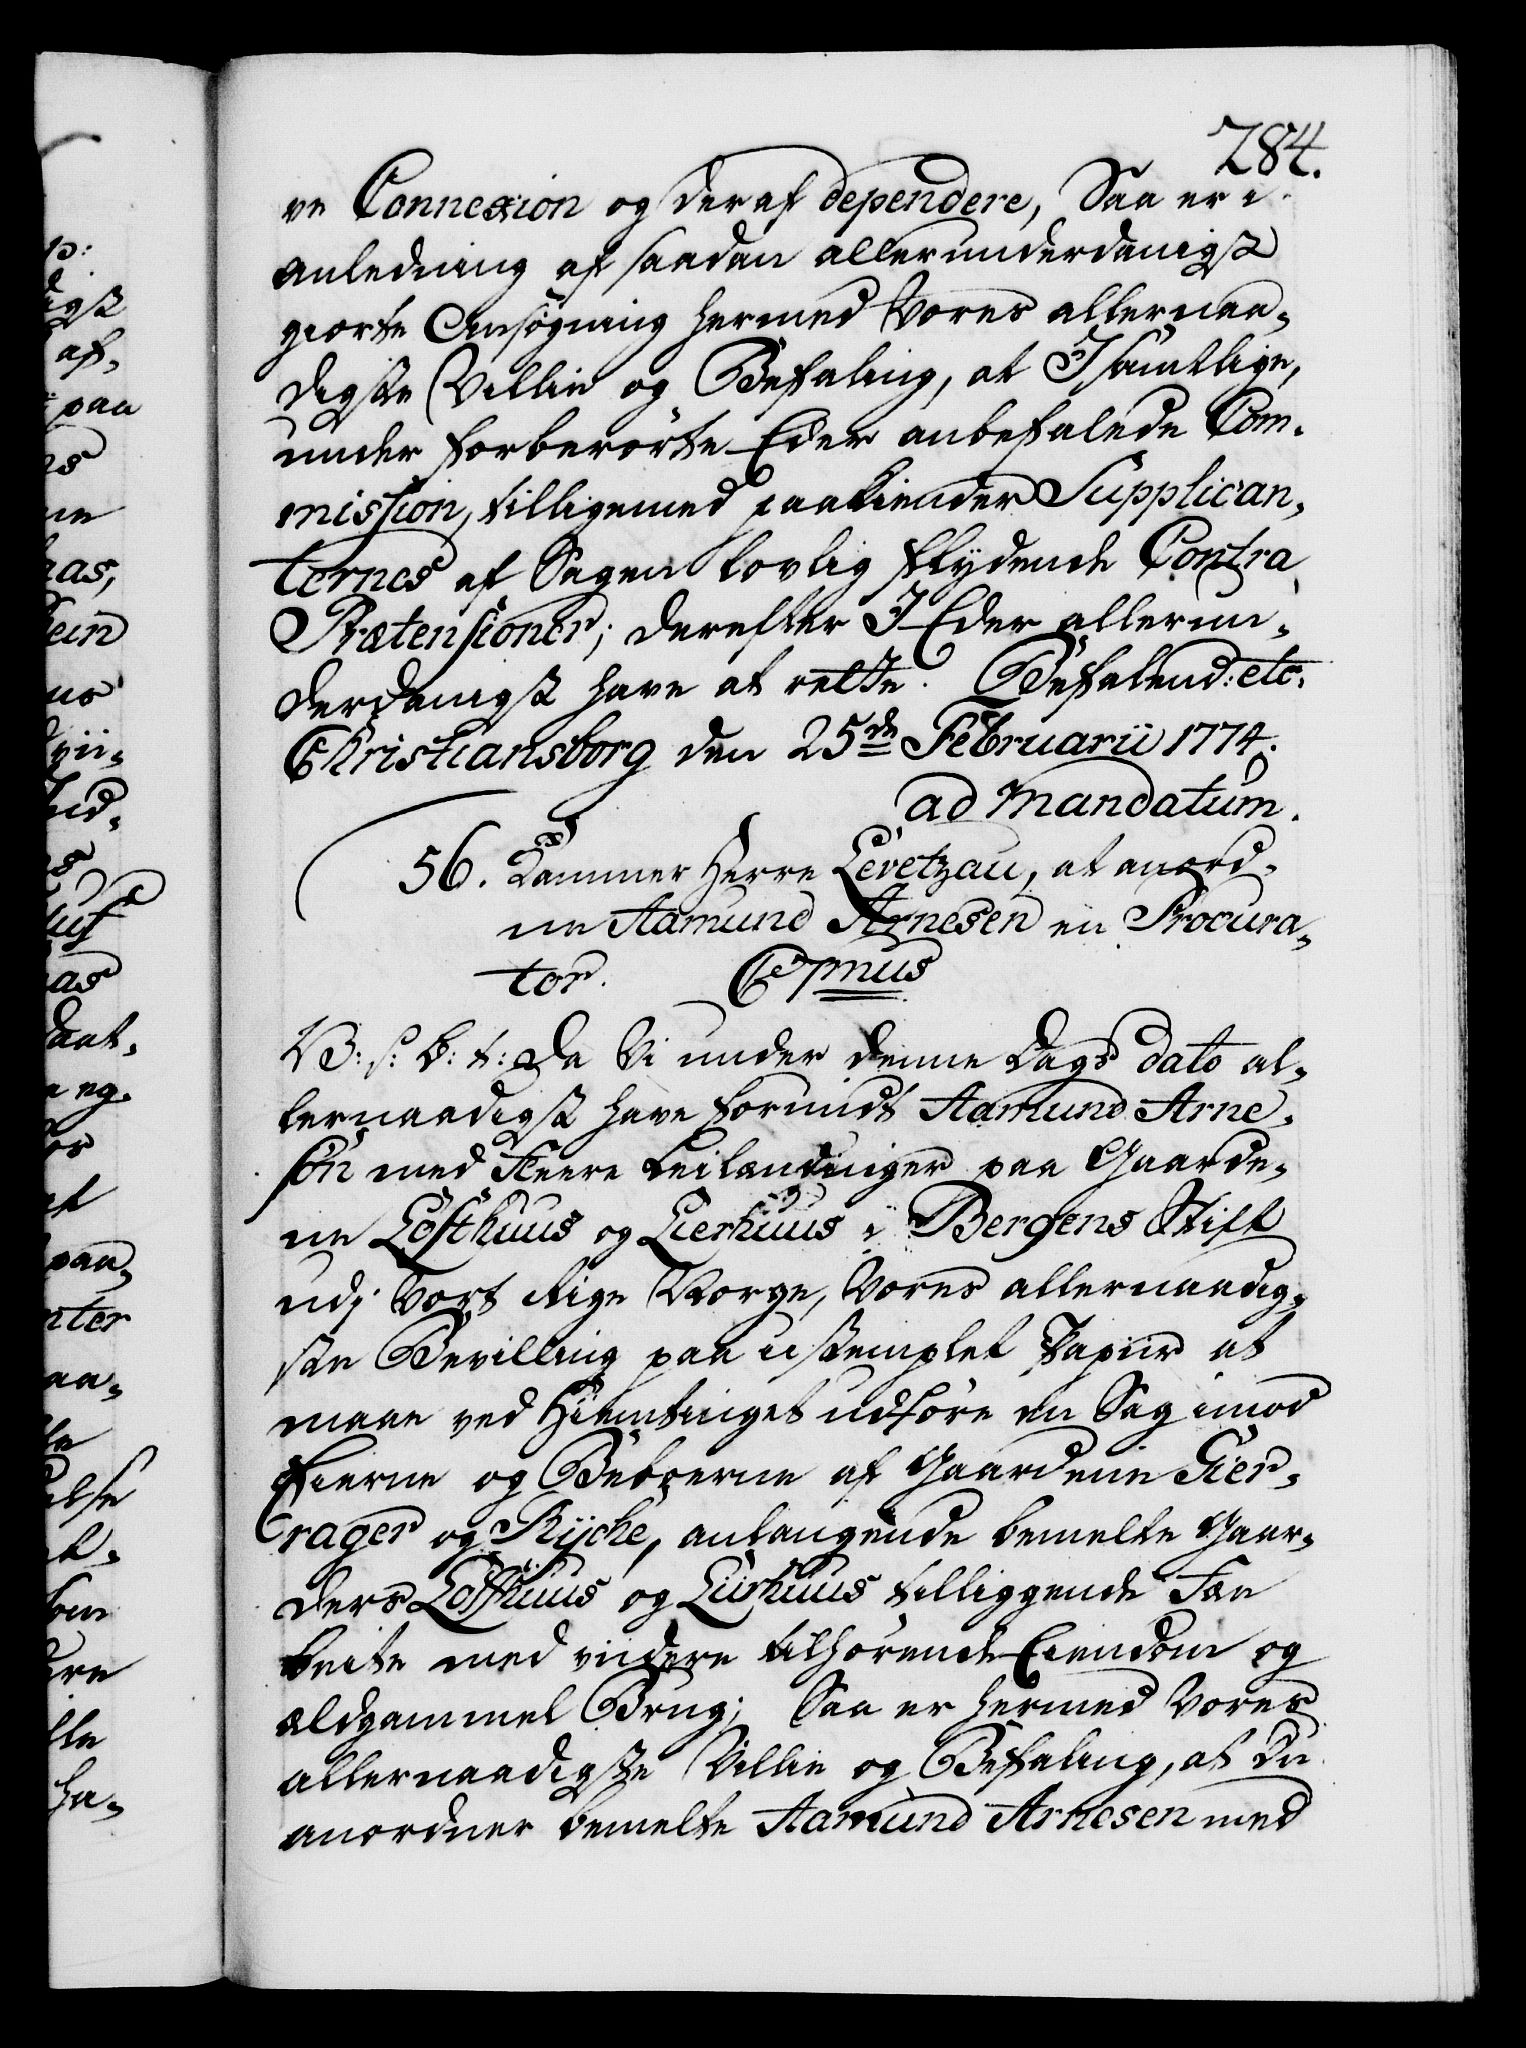 284.
ve Connexion og deraf dependere, Saa er i
Anledning af saadan allerunderdanigst
giorte Ansøgning hermed Vores allernaa-
digste Villie og Befaling, at I samtlige,
under forberørte Eder anbefalede Com-
mission, tilligemed paakiender Supplican-
ternes af Sagen lovlig flydende Contra
Prætensioner; derefter I Eder allerun-
derdanigst have at rette. Befalend: etc.
Christiansborg den 25de Februarii 1774.
ad Mandatum.
56. Kammer Herre Levetzau, at anord-
ne Aamund Arnesen en Procura-
tor.
V: s: b: t: Da Vi under denne Dags dato al-
lernaadigst have forundt Aamund Arne-
søn med fleere Leilændinger paa Gaarde-
ne Lofthuus og Lierhuus i Bergens Stift
udj Vort Rige Norge, Vores allernaadig-
ste Bevilling paa ustemplet Papiir at
maae ved Hiemtinget udføre en Sag imod
Eierne og Beboerne af Gaardene Gier-
rager og Ryche, anlangende bemelte Gaar-
ders Lofthuus og Lierhuus tilliggende Fæe
beite med viidere tilhørende Eiendom og
ældgammel Brug; Saa er hermed Vores
allernaadigste Villie og Befaling, at Du
anordner bemelte Aamund Arnesen med